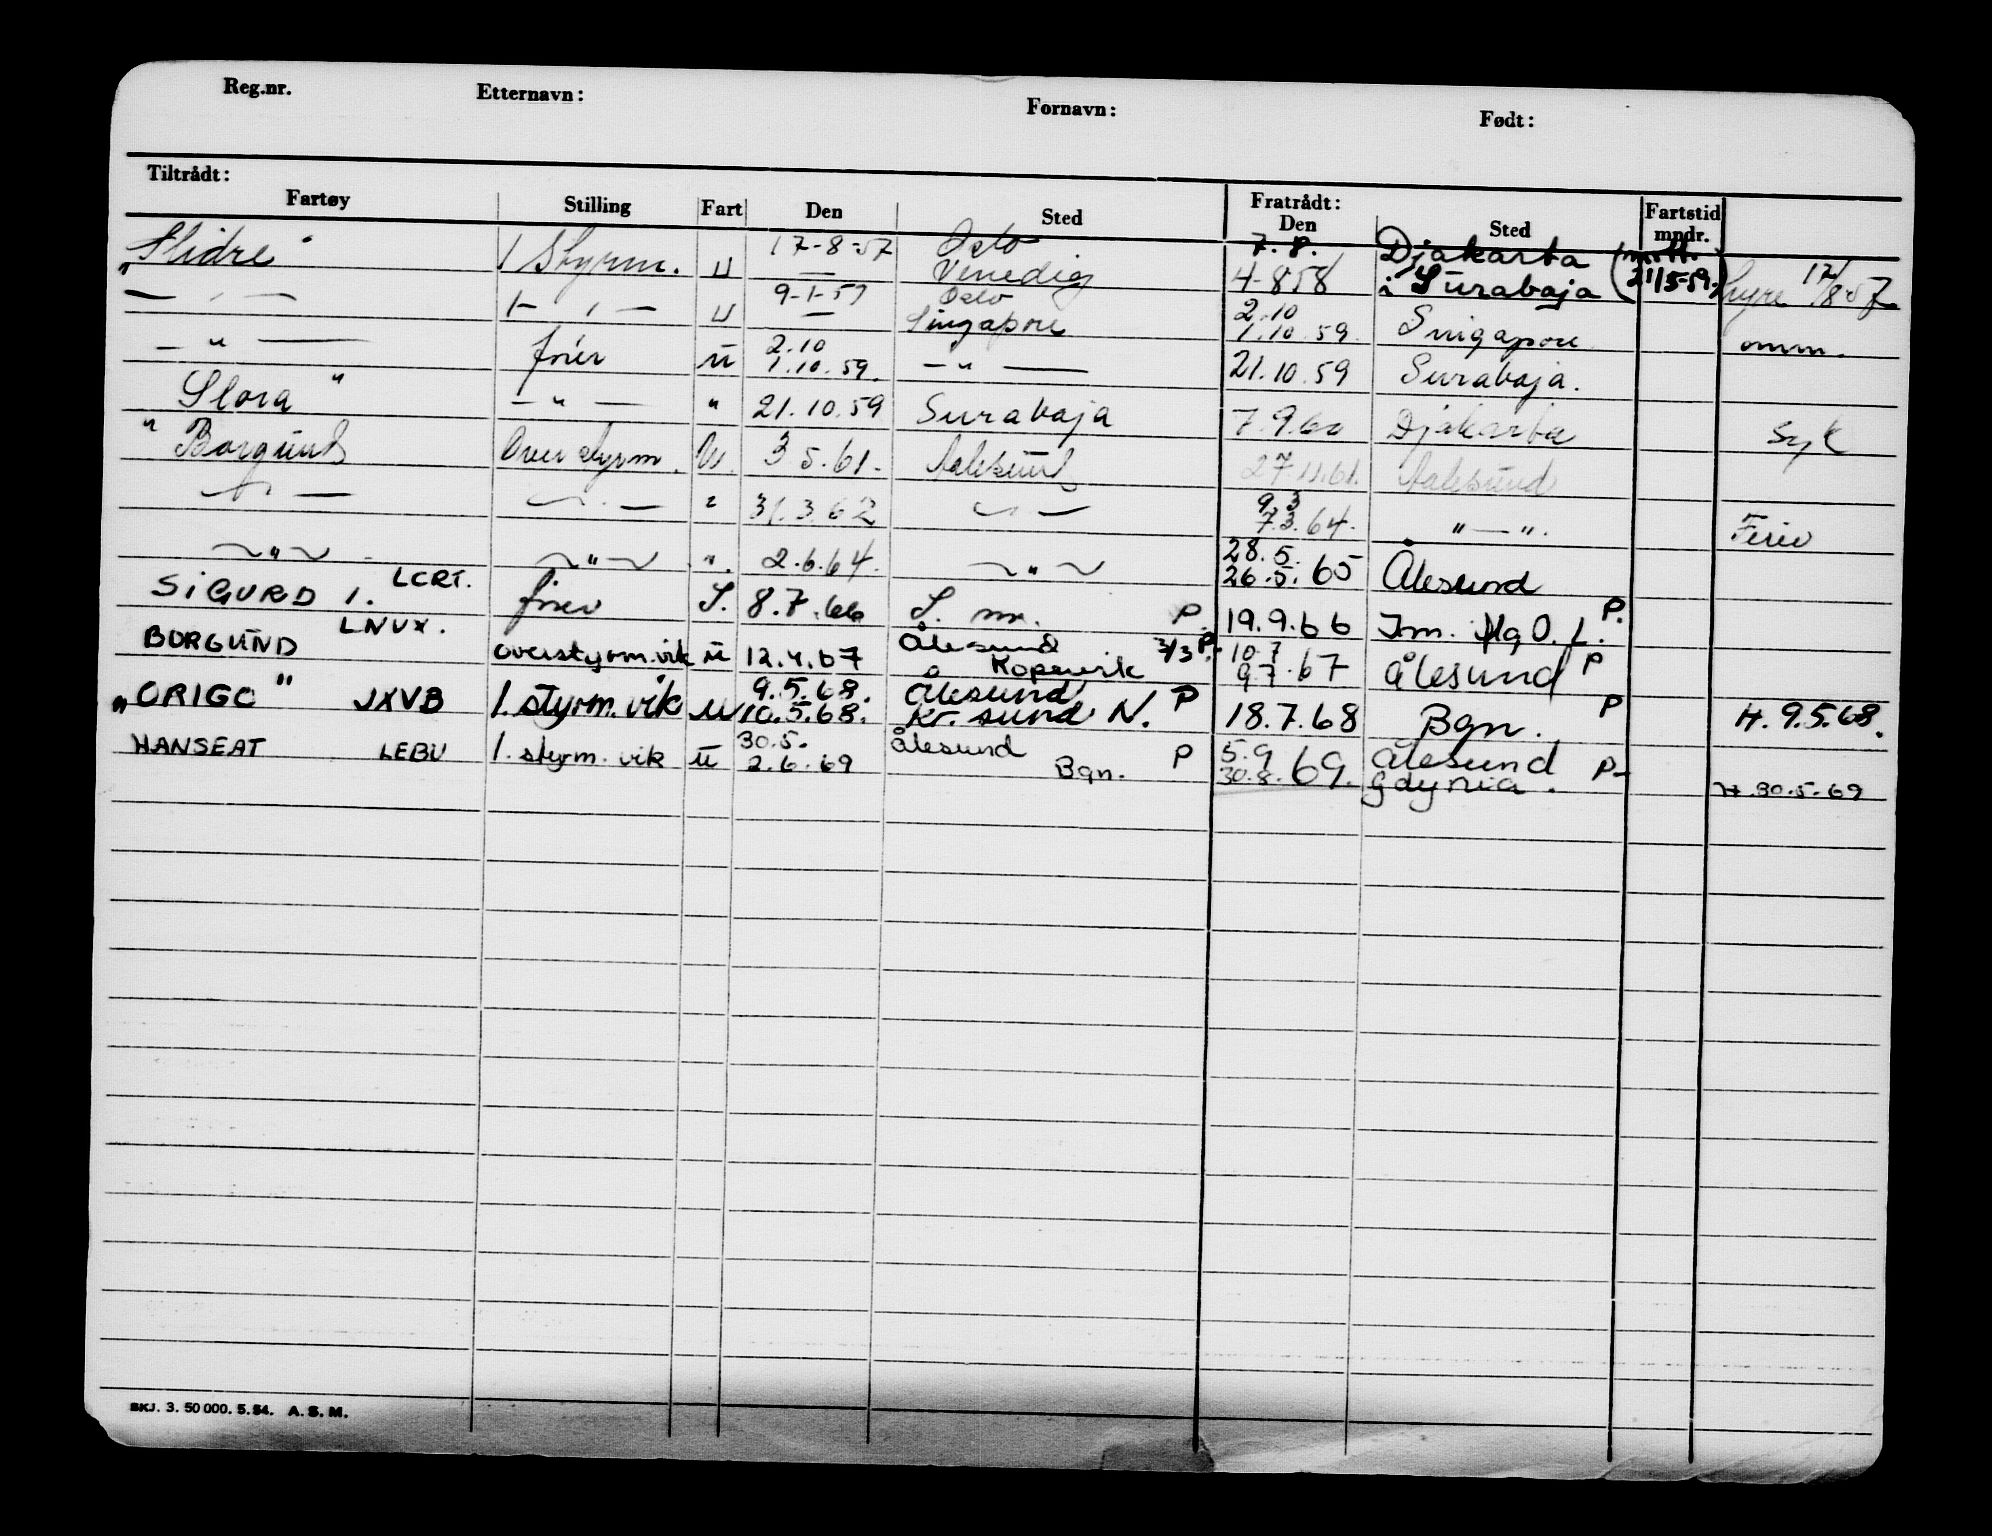 Reg.nr. Etternavn: Fornavn: Født:
Tiltrådt: Fratrådt:
Fartøy Stilling Fart Den Sted Den Sted Fartstid mndr.
"Slidre" 1 Styrm. u 17-8-57 Oslo 7.8. Djakarta
— Venedig 4-8 58 i Surabaja 21/5-59. hyre 17/8-57
— " — 1- " — u 9-1-59 Oslo 2.10
— Singapore 1.10.59. Singapore omm.
— " — fører u 2.10
1.10.59. — " — 21.10.59 Surabaja.
Slora" — " — " 21.10.59 Surabaja 7.9.60 Djakarta Syk
"Borgund Overstyrm. U. 3 5.61. Aalesund 27.11.61. Aalesund
— " — — " — " 31.3.62 — " — 9.3
7.3.64. " — ". Ferie
~ " ~ ~ " ~ ". 2.6.64. ~ " ~ 28.5.
26.5.65 Ålesund
SIGURD 1. LCRT. fører S. 8.7.66 S. P. 19.9.66 Tm. Mg O. L. P.
BORGUND LNVX. overstyrm.vik u 12.4.67 Ålesund 2/3 P. 10.7
Kopervik 9.7.67 Ålesund P
"ORIGO" JXVB 1. styrm. vik u 9.5.68. Ålesund P
10.5.68. Kr.sund N. 18.7.68 Bgn. P H. 9.5.68.
HANSEAT LEBU 1. styrm. vik u 30.5. Ålesund P 5.9 Ålesund P-
2.6.69 Bgn. 30.8.69. Gdynia. H. 30.5.69
SKJ. 3. 50 000. 5. 54. A. S. M.